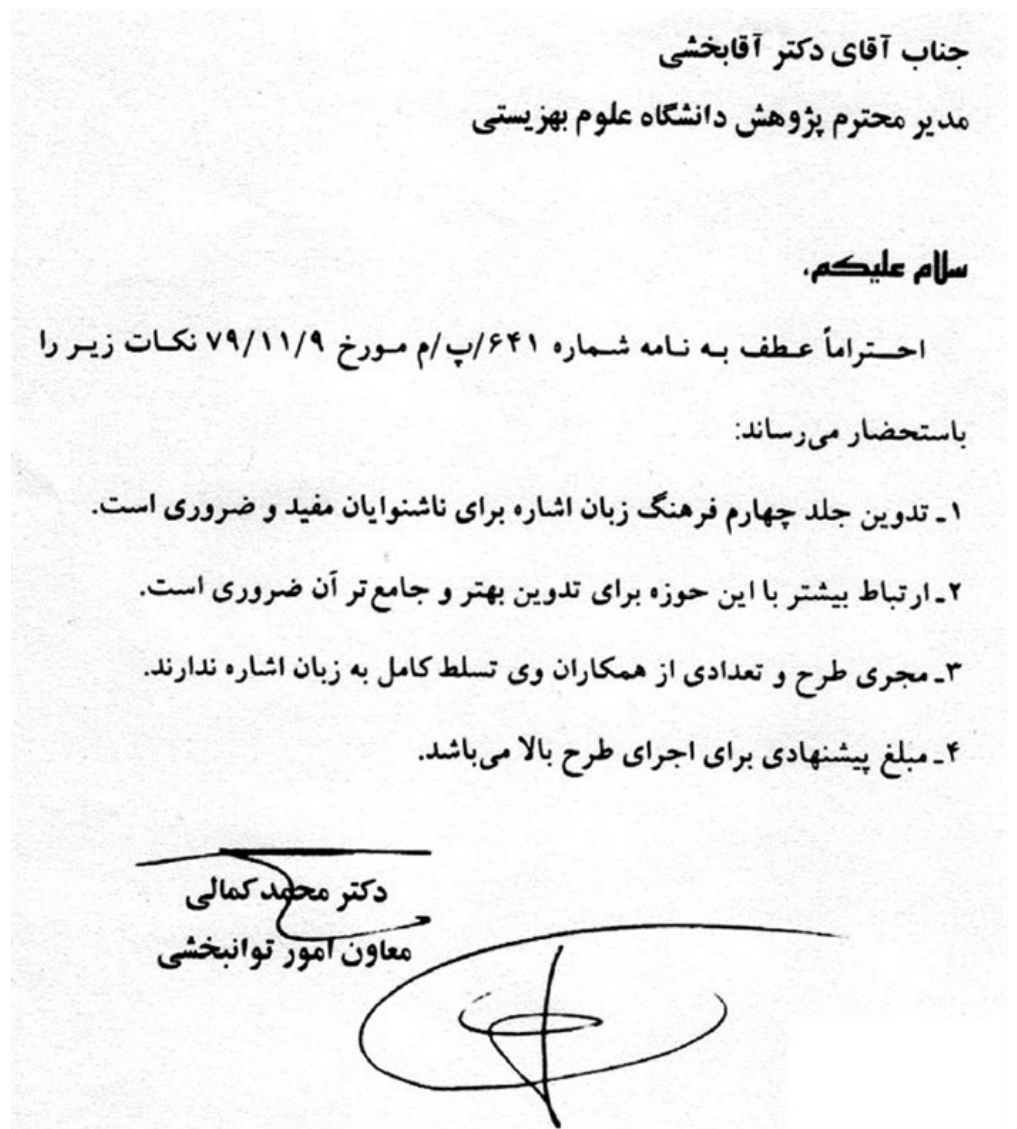 جناب آقای دکتر آقابخشی
مدیر محترم پژوهش دانشگاه علوم بهزیستی
سلام علیکم،
احتراماً عطف به نامه شماره ۶۴۱/پ/م مورخ ۷۹/۱۱/۹ نکات زیر را
باستحضار می‌رساند:
۱ـ تدوین جلد چهارم فرهنگ زبان اشاره برای ناشنوایان مفید و ضروری است.
۲ـ ارتباط بیشتر با این حوزه برای تدوین بهتر و جامع‌تر آن ضروری است.
۳ـ مجری طرح و تعدادی از همکاران وی تسلط کامل به زبان اشاره ندارند.
۴ـ مبلغ پیشنهادی برای اجرای طرح بالا می‌باشد.
دکتر محمد کمالی
معاون امور توانبخشی